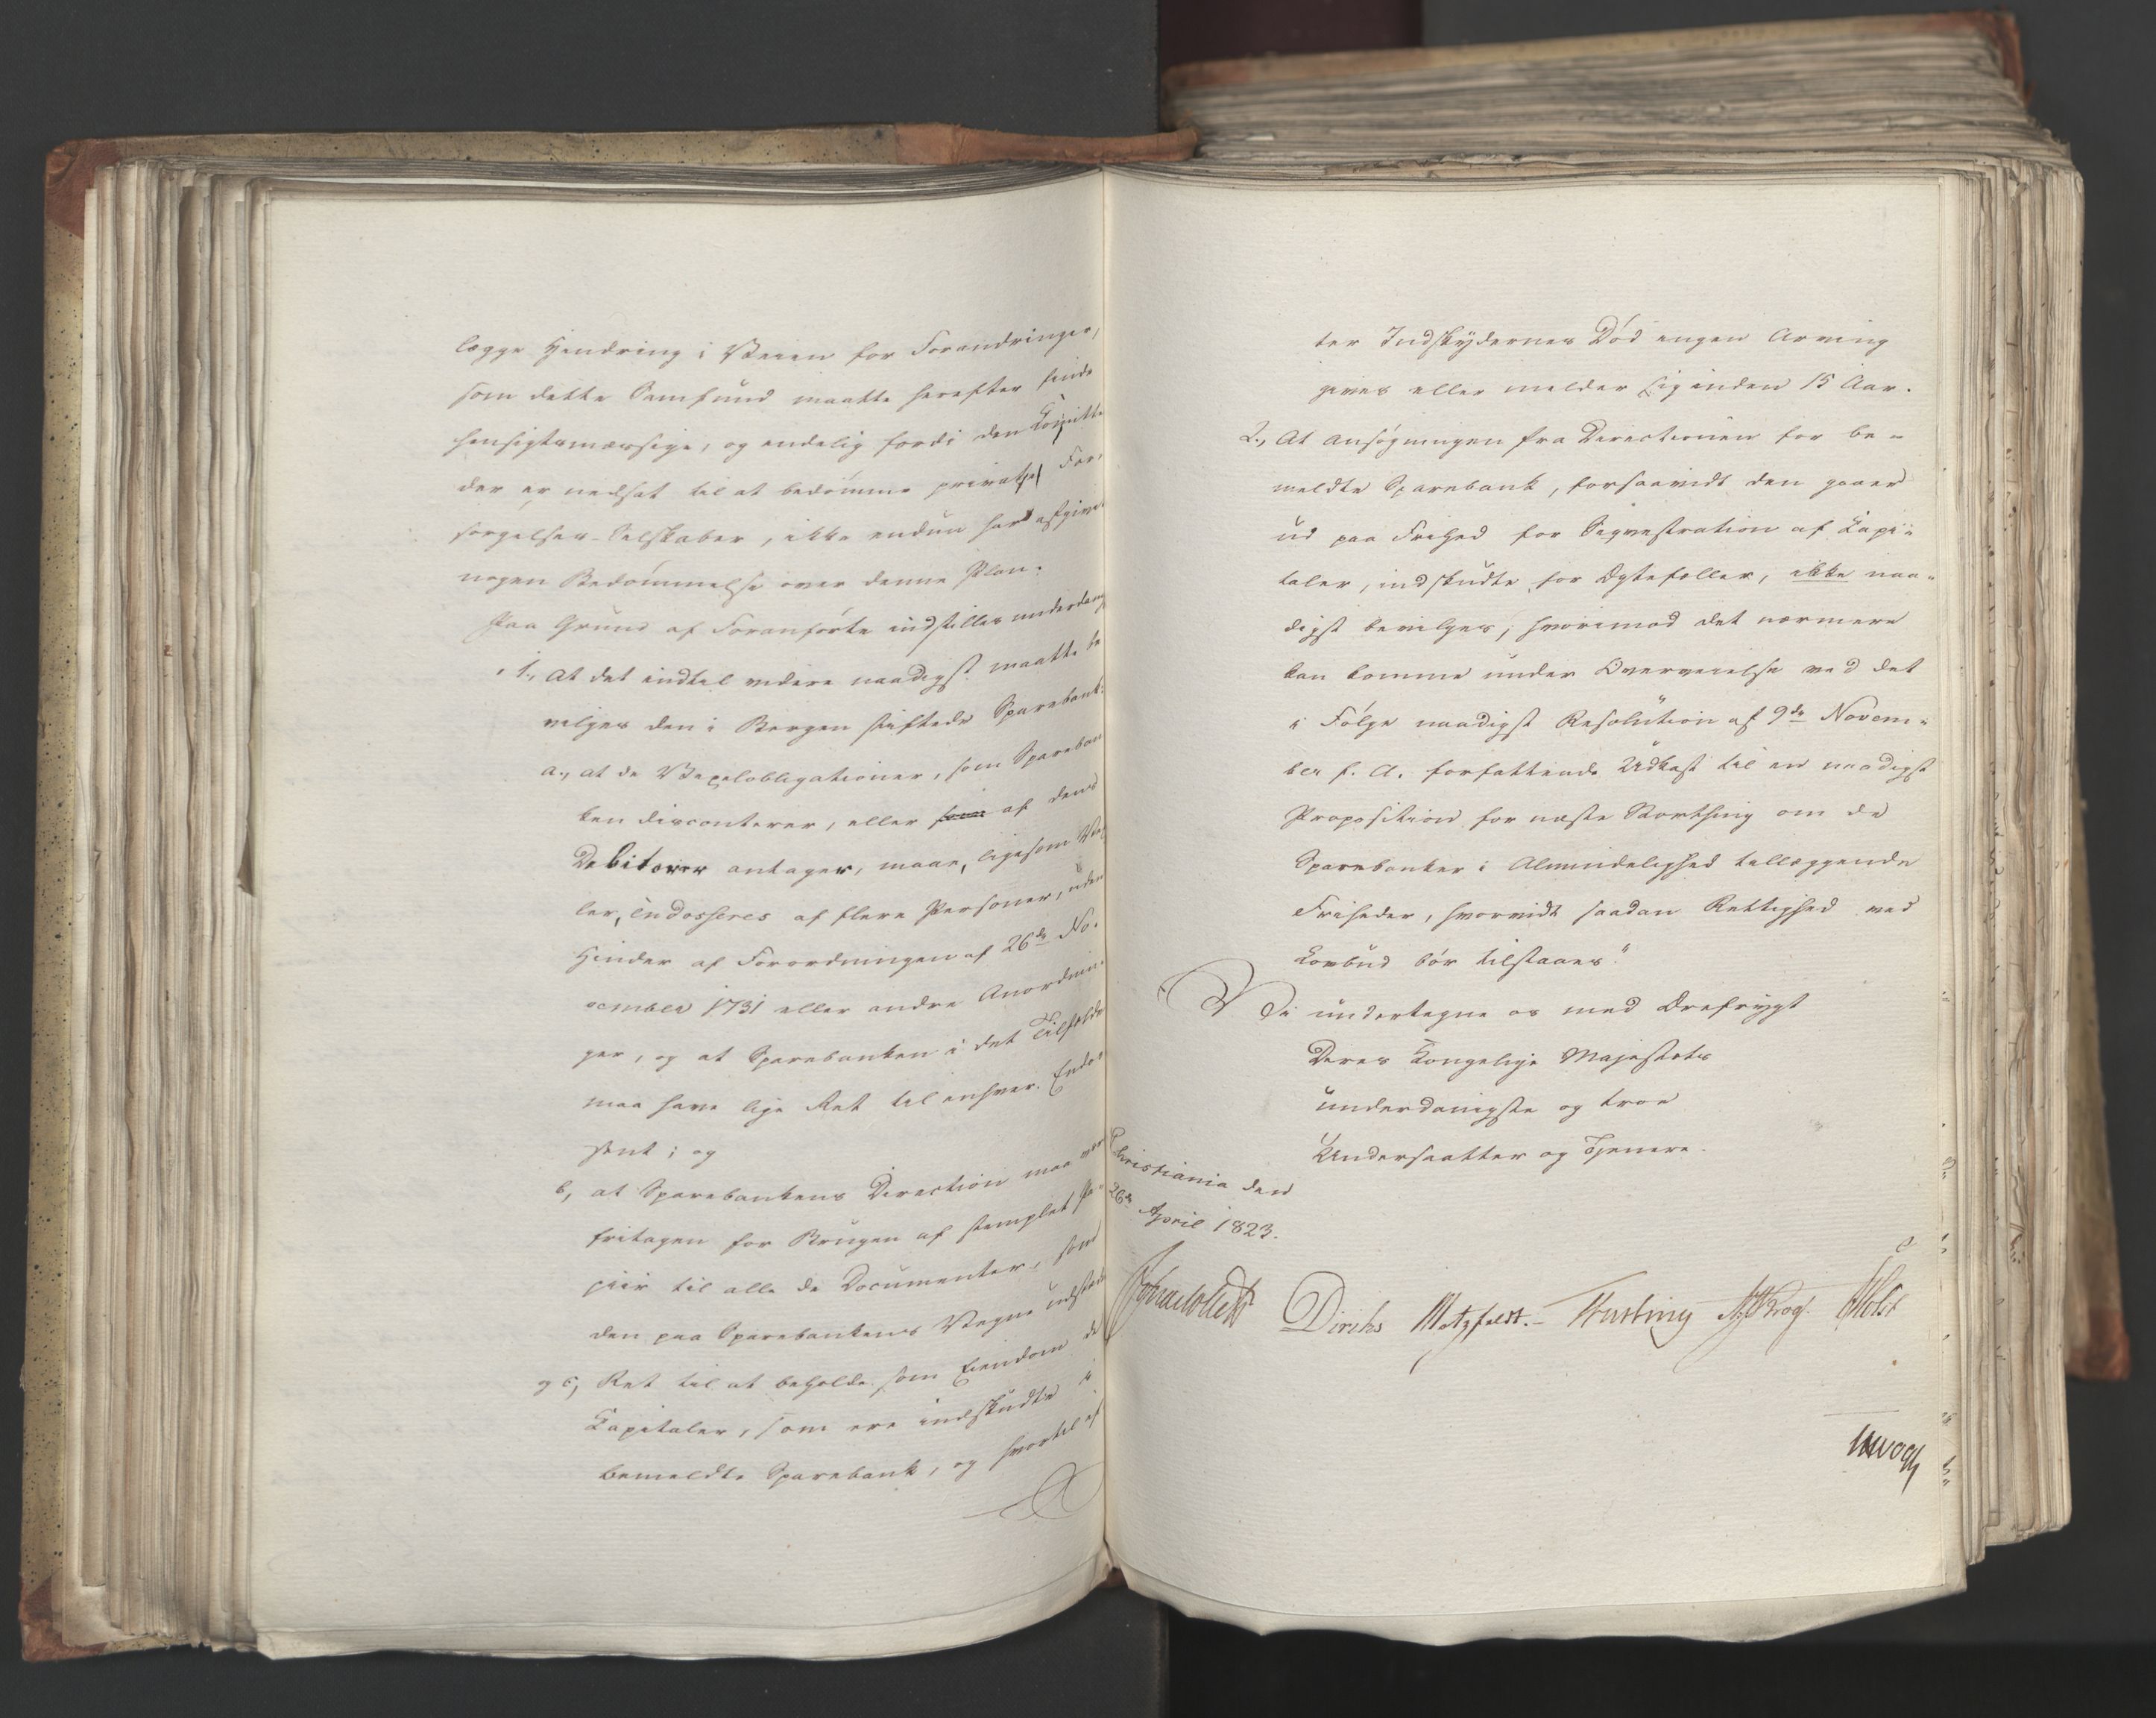 lægge Hindring i Veien for Forandringer,
som dette Samfund maatte herefter finde
hensigtsmæssige, og endelig fordi den Comitte
der er nedsat til at bedømme private For-
sørgelses-Selskaber, ikke endnu har afgivet
nogen Bedømmelse over denne Plan.
Paa Grund af Foranførte indstilles underdanigst
1., At det indtil videre naadigst maatte be
vilges den i Bergen stiftede Sparebank:
a., at de Vexelobligationer, som Spareban
ken disconterer, eller af dens
Debitorer antager, maae, ligesom Vex
ler, endosseres af flere Personer, uden
Hinder af Forordningen af 26de No-
vember 1731 eller andre Anordnin-
ger, og at Sparebanken i det Tilfælde
maa have lige Ret til enhver Endos-
sent; og
b, at Sparebankens Direction maa være
fritagen for Brugen af stemplet Pa-
piir til alle de Documenter, som
den paa Sparebankens Vegne udsteder
og c, Ret til at beholde som Eiendom de
Capitaler, som ere indskudte i
bemeldte Sparebank, og hvortil ef
ter Indskydernes Død ingen Arving
gives eller melder sig inden 15 Aar.
2., At Ansøgningen fra Directionen for be-
meldte Sparebank, forsaavidt den gaaer
ud paa Frihed for Seqvestration af Capi-
taler, indskudte for Ægtefæller, ikke naa-
digst bevilges; hvorimod det nærmere
kan komme under Overveielse ved det
i Følge naadigst Resolution af 9de Novem-
ber f. A. forfattende Udkast til en naadigst
Proposition for næste Storthing om de
Sparebanker i Almindelighed tillæggende
Friheder, hvorvidt saadan Rettighed ved
Lovbud bør tilstaaes."
Vi undertegne os med Ærefrygt
Deres Kongelige Majestæts
underdanigste og troe
Undersaatter og Tjenere.
Christiania den
26de April 1823.
Diriks Motzfeldt. Krog. Holst